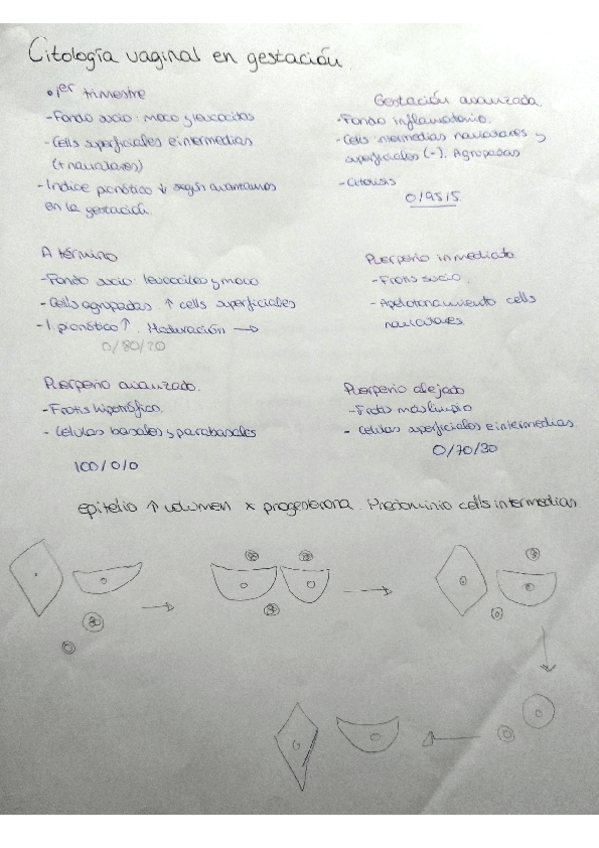 Citología vaginal en gestación
• 1er trimestre
- Fondo sucio: moco y leucocitos
- Cells superficiales e intermedias
(+ naviculares)
- Indice picnótico ↓ según avanzamos
en la gestación.
Gestación avanzada.
- Fondo inflamatorio.
- Cells intermedias naviculares y
superficiales (-). Agrupadas
- Citolisis
0/95/5
A término
- Fondo sucio: leucocitos y moco
- Cells agrupadas ↑ cells superficiales
- I. picnótico ↑. Maduración →
0/80/20
Puerperio inmediato
- Frotis sucio
- Apelotonamiento cells
naviculares
Puerperio avanzado.
- Frotis hipotrófico.
- Células basales y parabasales
100/0/0
Puerperio alejado
- Frotis más limpio
- Células superficiales e intermedias.
0/70/30
epitelio ↑ volumen x progesterona. Predominio cells intermedias